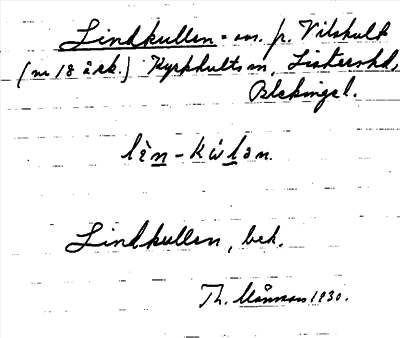 Lindkullen = on. p. Vilshult
(nr 18 ark.) Kyrkhults sn, Listers hd,
Blekinge l.
lìn-kúlən.
Lindkullen, bek.
Th. Månsson 1930.